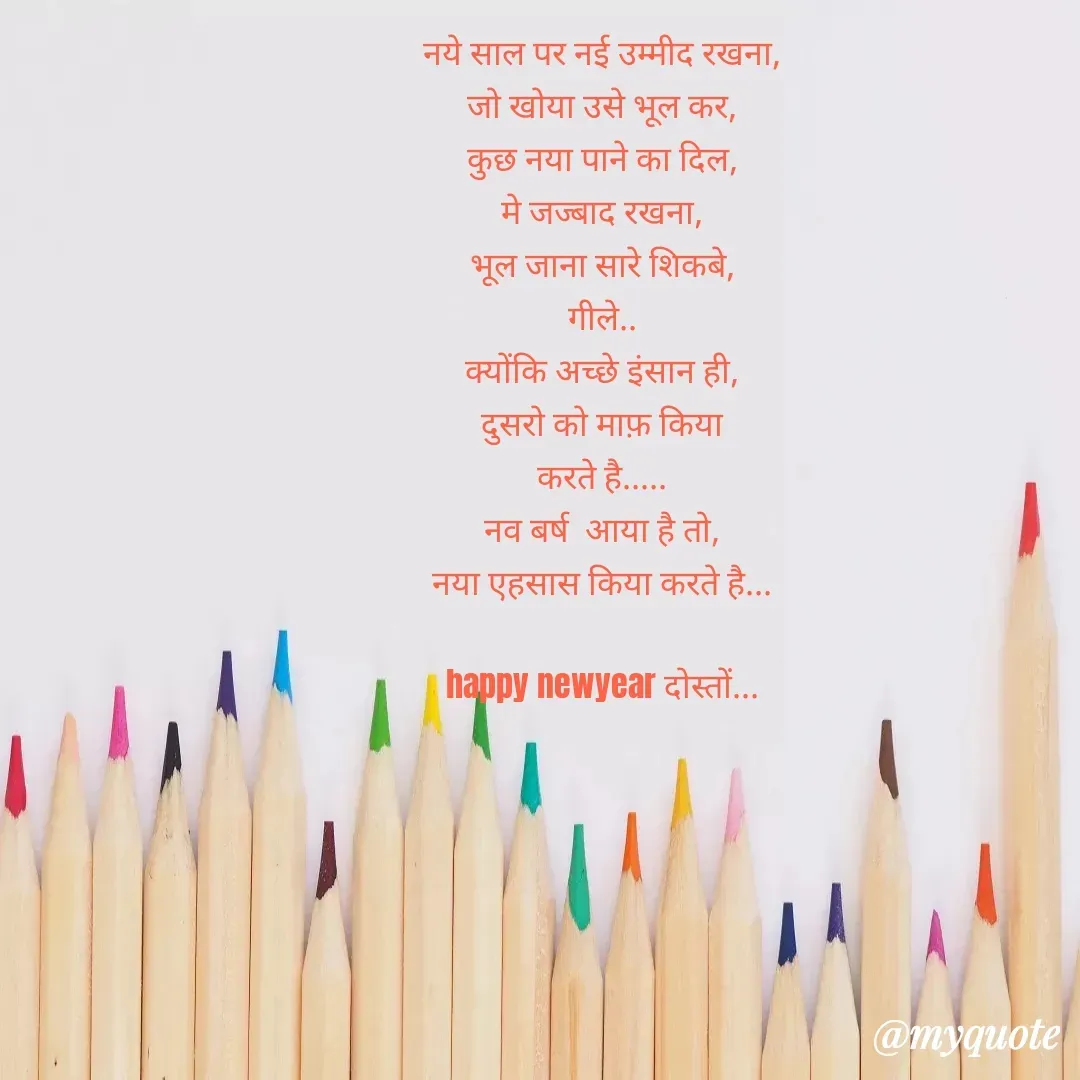 नये साल पर नई उम्मीद रखना,
जो खोया उसे भूल कर,
कुछ नया पाने का दिल,
मे जज्बाद रखना,
भूल जाना सारे शिकबे,
गीले..
क्योंकि अच्छे इंसान ही,
दुसरो को माफ़ किया
करते है.....
नव बर्ष  आया है तो,
नया एहसास किया करते है...
happy newyear दोस्तों...
@myquote